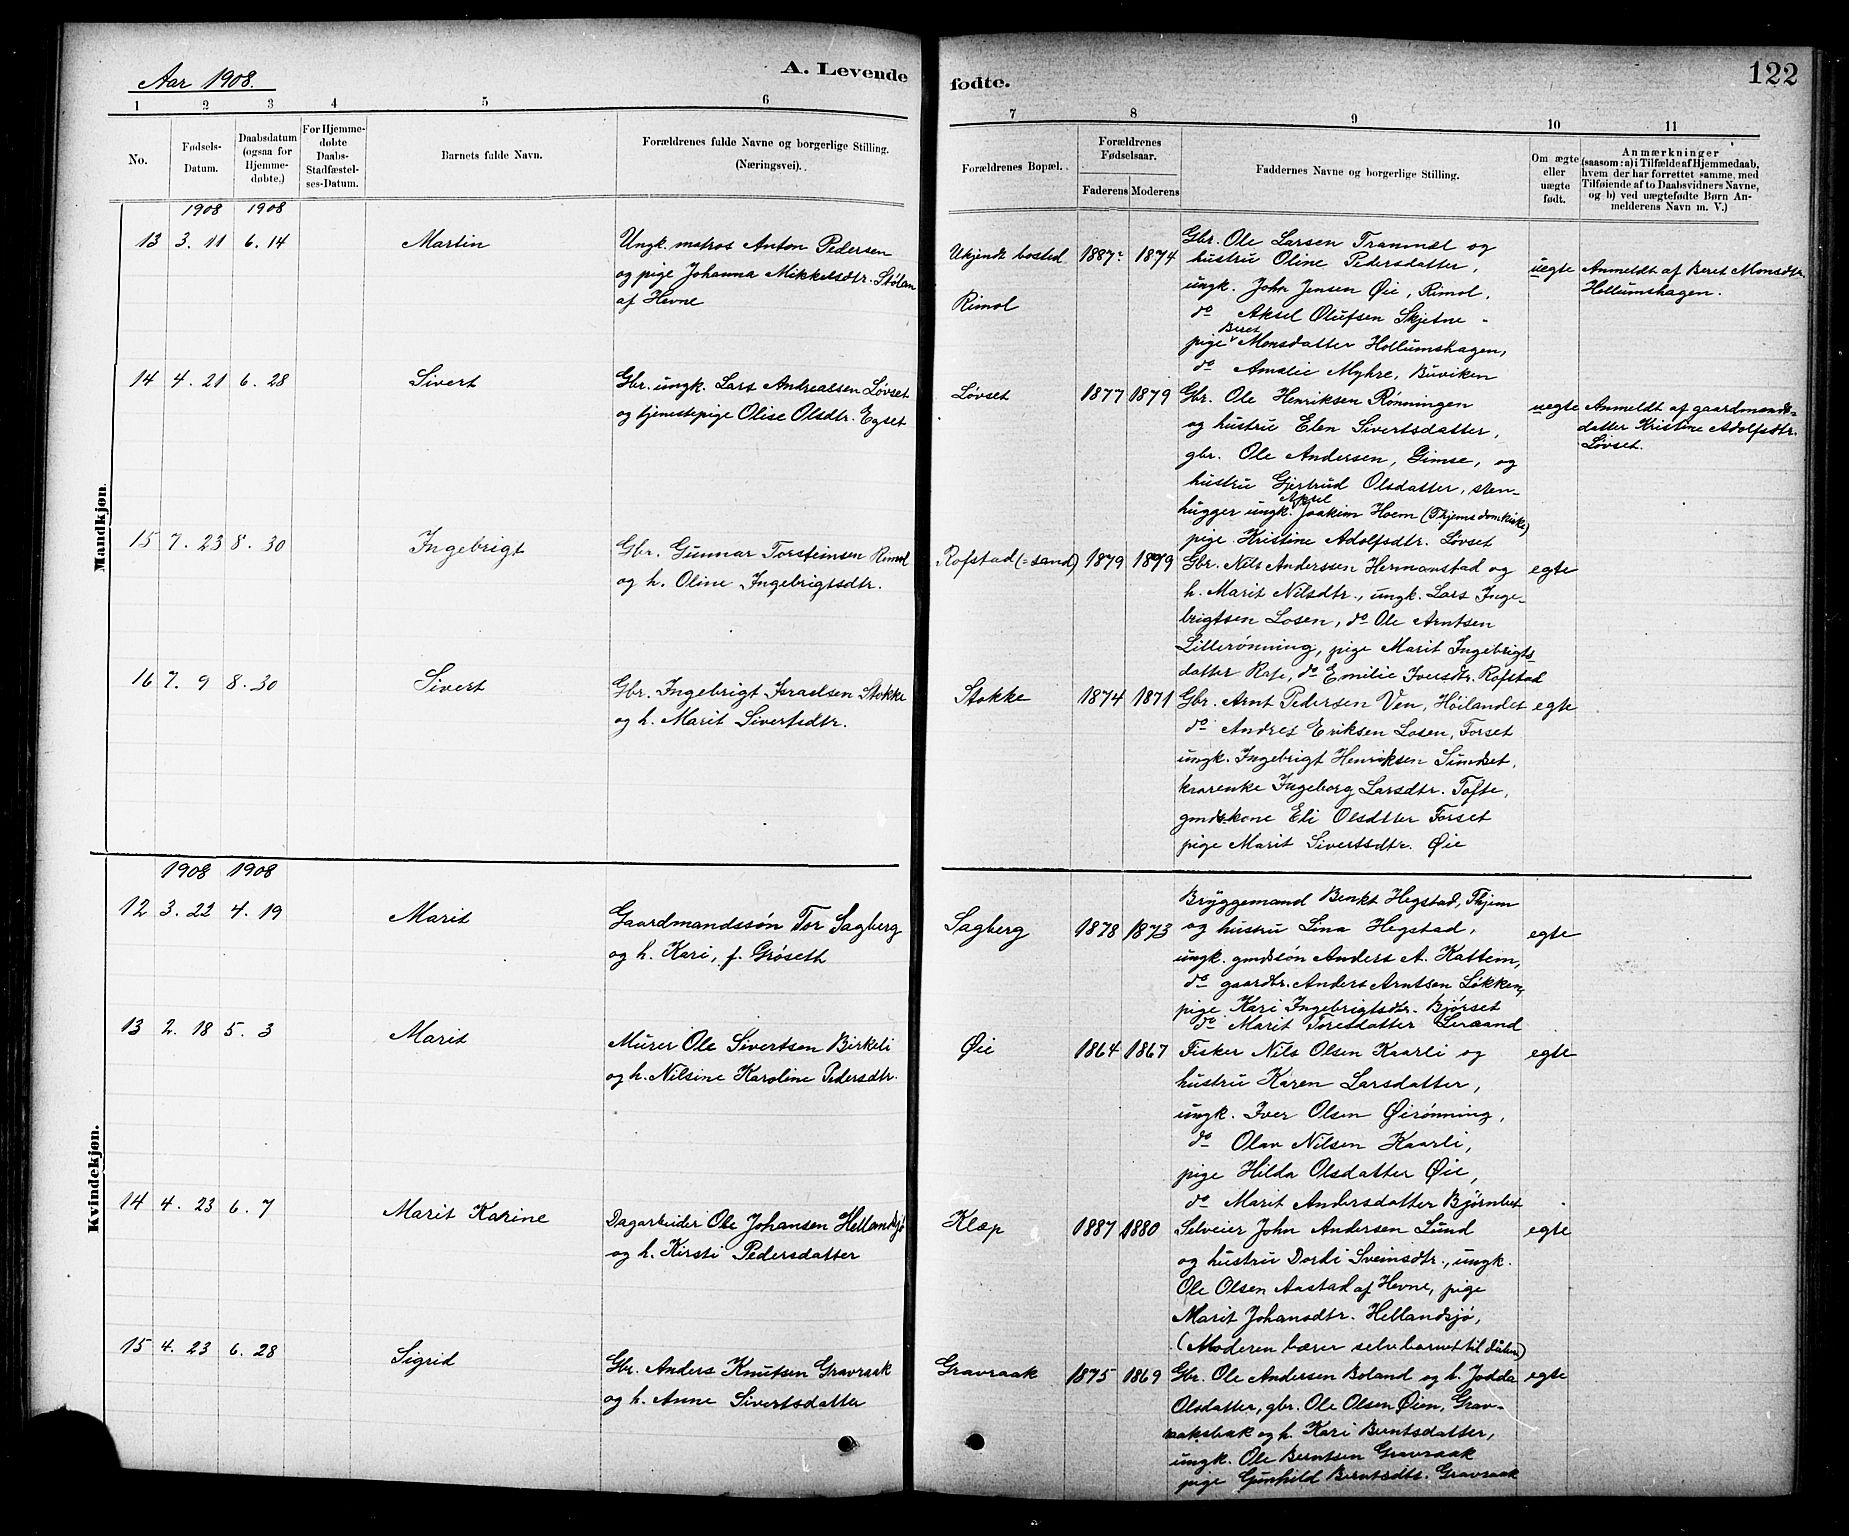 Aar 1908.
A. Levende
fødte.
122
1 2 3 4 5 6
7 8 9 10 11
No.
Fødsels-
Datum.
Daabsdatum
(ogsaa for
Hjemme-
døbte.)
For Hjemme-
døbte
Daabs-
Stadfæstel-
ses-Datum.
Barnets fulde Navn.
Forældrenes fulde Navne og borgerlige Stilling.
(Næringsvei).
Forældrenes Bopæl.
Forældrenes
Fødselsaar.
Faderens Moderens
Faddernes Navne og borgerlige Stilling.
Om ægte
eller
uægte
født.
Anmærkninger
(saasom: a) i Tilfælde af Hjemmedaab,
hvem der har forrettet samme, med
Tilføiende af to Daabsvidners Navne,
og b) ved uægtefødte Børn An-
melderens Navn m. V.)
Mandkjøn.
1908 1908
13 3. 11 6. 14 Martin
Ungk. matros Anton Pedersen
og pige Johanna Mikkelsdtr. Stølan
af Hevne
Ukjendt bosted
Rimol
1887 1874
Gbr. Ole Larsen Tranmæl og
hustru Oline Pedersdatter,
ungk. John Jensen Øie, Rimol,
do Aksel Olufsen Skjetne
Beret
pige Monsdatter Hollumshagen,
do Amalie Myhre, Buviken
uegte
Anmeldt af Beret Monsdtr.
Hollumshagen.
14 4. 21 6. 28 Sivert
Gbr. ungk. Lars Andreassen Løvset
og tjenestepige Olise Olsdtr. Egset
Løvset
1877 1879
Gbr. Ole Henriksen Rønningen
og hustru Elen Sivertsdatter,
gbr. Ole Andersen, Gimse, og
hustru Gjertrud Olsdatter, sten-
Aksel
hugger ungk. Joakim Hoem (Thjems domkirke)
pige Kristine Adolfsdtr. Løvset
uegte
Anmeldt af gaardmands-
datter Kristine Adolfsdtr.
Løvset.
15 7. 23 8. 30 Ingebrigt
Gbr. Gunnar Torsteinsen Rimol
og h. Oline Ingebrigtsdtr.
Rofstad (= sand)
1879 1899
Gbr. Nils Anderssen Hermanstad og
h. Marit Nilsdtr., ungk. Lars Inge-
brigtsen Losen, do Ole Arntsen
Lillerønning, pige Marit Ingebrigts-
datter Rase, do Emilie Iversdtr. Rofstad
egte
16 7. 9 8. 30 Sivert
Gbr. Ingebrigt Israelsen Stokke
og h. Marit Sivertsdtr.
Stokke
1874 1871
Gbr. Arnt Pedersen Ven, Høilandet
do Andres Eriksen Losen, Forset
ungk. Ingebrigt Henriksen Sundset,
kaarenke Ingeborg Larsdtr. Tofte,
gmdskone Eli Olsdtter Forset
pige Marit Sivertsdtr. Øie
egte
Kvindekjøn.
1908 1908
12 3. 22 4. 19 Marit
Gaardmandssøn Tor Sagberg
og h. Kari, f. Grøseth
Sagberg
1878 1873
Bryggemand Benkt Hegstad, Thjem
og hustru Lina Hegstad,
ungk. gmdssøn Anders A. Kattem,
do gaardbr. Anders Arntsen Løkken,
pige Kari Ingebrigtsdtr. Bjørset
do Marit Toresdatter Leraand
egte
13 2. 18 5. 3 Marit
Murer Ole Sivertsen Birkeli
og h. Nilsine Karoline Pedersdtr.
Øie
1864 1867
Fisker Nils Olsen Kaarli og
hustru Karen Larsdatter,
ungk. Iver Olsen Øirønning,
do Olav Nilsen Kaarli,
pige Hilda Olsdatter Øie,
do Marit Andersdatter Bjørnbet
egte
14 4. 23 6. 7 Marit Karine
Dagarbeider Ole Johansen Hellandsjø
og h. Kirsti Pedersdatter
Klæp
1887 1880
Selveier John Andersen Lund
og hustru Dordi Sveinsdtr., ungk.
Ole Olsen Aastad af Hevne, pige
Marit Johansdtr. Hellandsjø,
(Moderen bærer selv barnet til daaben)
egte
15 4. 23 6. 28 Sigrid
Gbr. Anders Knutsen Gravraak
og h. Anne Sivertsdatter
Gravraak
1875 1869
Gbr. Ole Andersen Boland og h. Jodda
Olsdatter, gbr. Ole Olsen Øien, Grav-
raaksbak og h. Kari Berntsdatter,
ungk. Ole Berntsen Gravraak
pige Gunhild Berntsdtr. Gravraak
egte